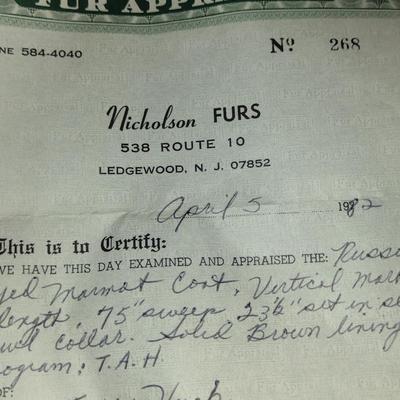 FUR APPR
NE 584-4040 Nº 268
Nicholson FURS
538 ROUTE 10
LEDGEWOOD, N. J. 07852
April 5 1982
This is to Certify:
WE HAVE THIS DAY EXAMINED AND APPRAISED THE: Russi
yed Marmot Coat, Vertical Mar
length, 75" sweep, 23½" set in sl
awl collar. Solid Brown lining
ogram: T.A.H.
OF: Hugh